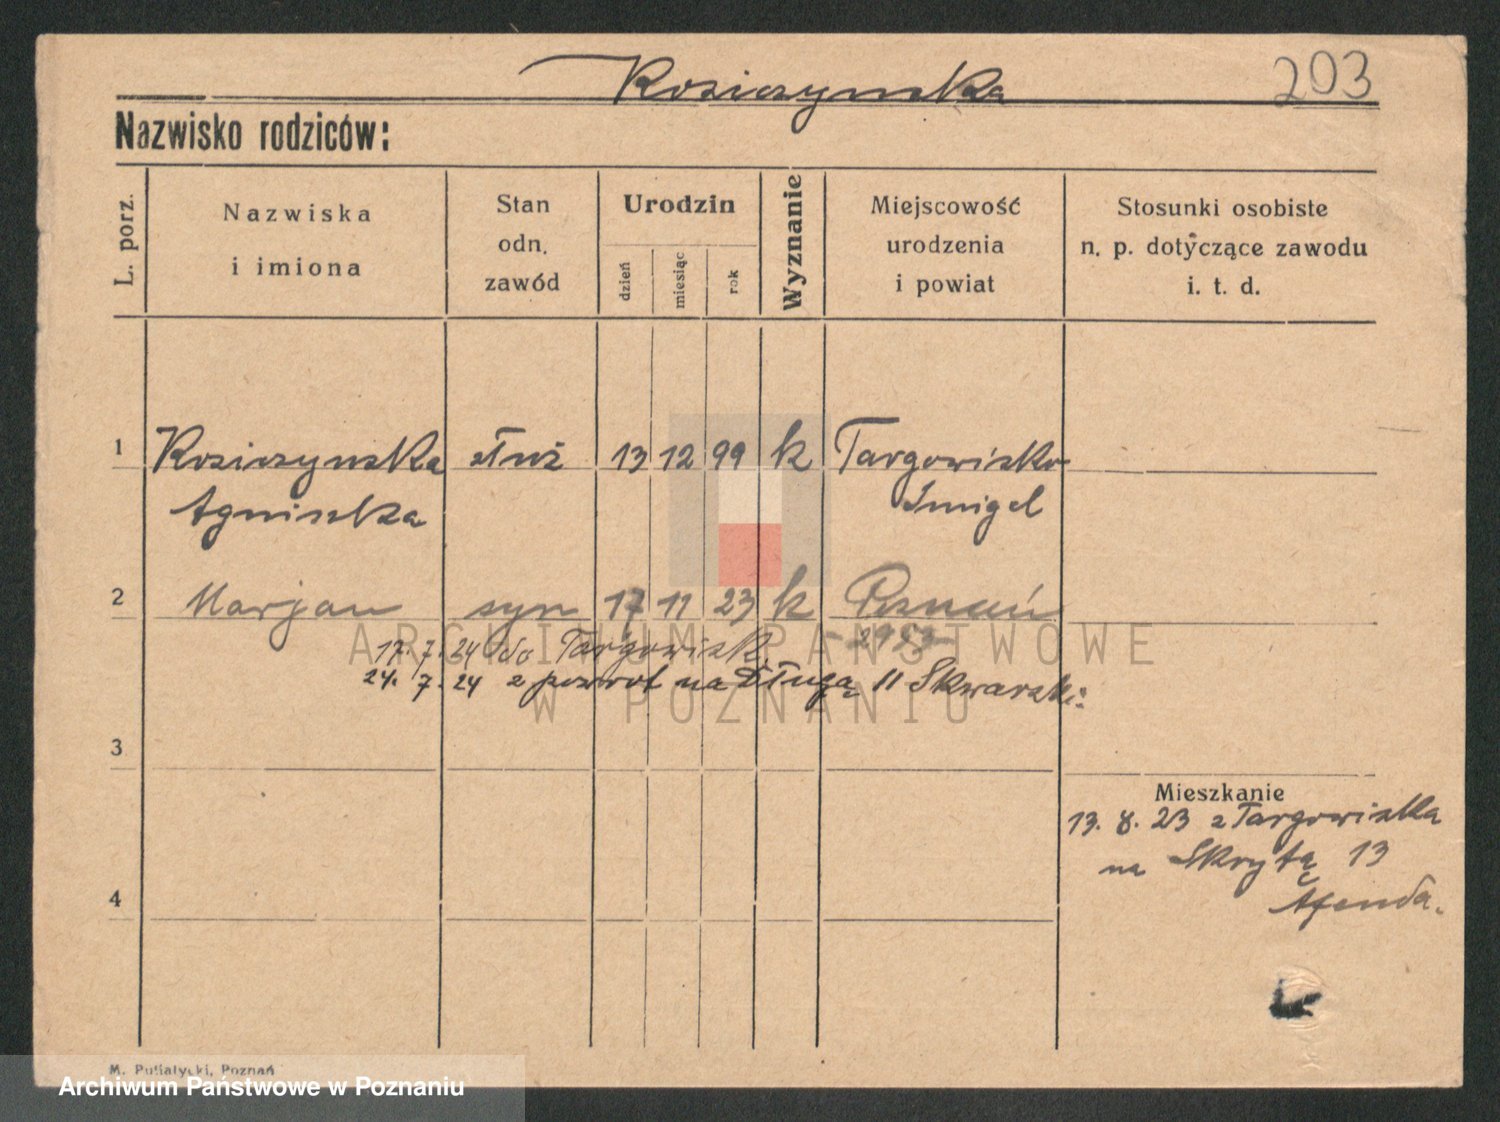 Kosiczynska
203
Nazwisko rodziców:
L. porz.
Nazwiska
i imiona
Stan
odn.
zawód
Urodzin
dzień
miesiąc
rok
Wyznanie
Miejscowość
urodzenia
i powiat
Stosunki osobiste
n. p. dotyczące zawodu
i. t. d.
1 Kosiczynska służ 13 12 99 k Targowisko
Agniszka Śmigel
2 Marjan syn 17 11 23 k Poznań
17. 7. 24 do Targowisk.
24. 7. 24 z powrot na Długą 11 Skwarski.
3
Mieszkanie
13. 8. 23 z Targowiska
na Skrytą 13
4
M. Putiatycki, Poznań
ARCHIWUM PAŃSTWOWE
W POZNANIU
Archiwum Państwowe w Poznaniu